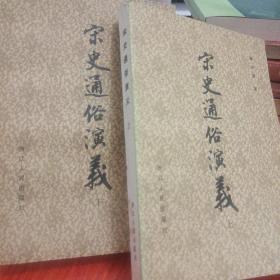 宋史通俗演義
下
浙江人民出版社
宋史通俗演義 上
宋史通俗演義
上
浙江人民出版社